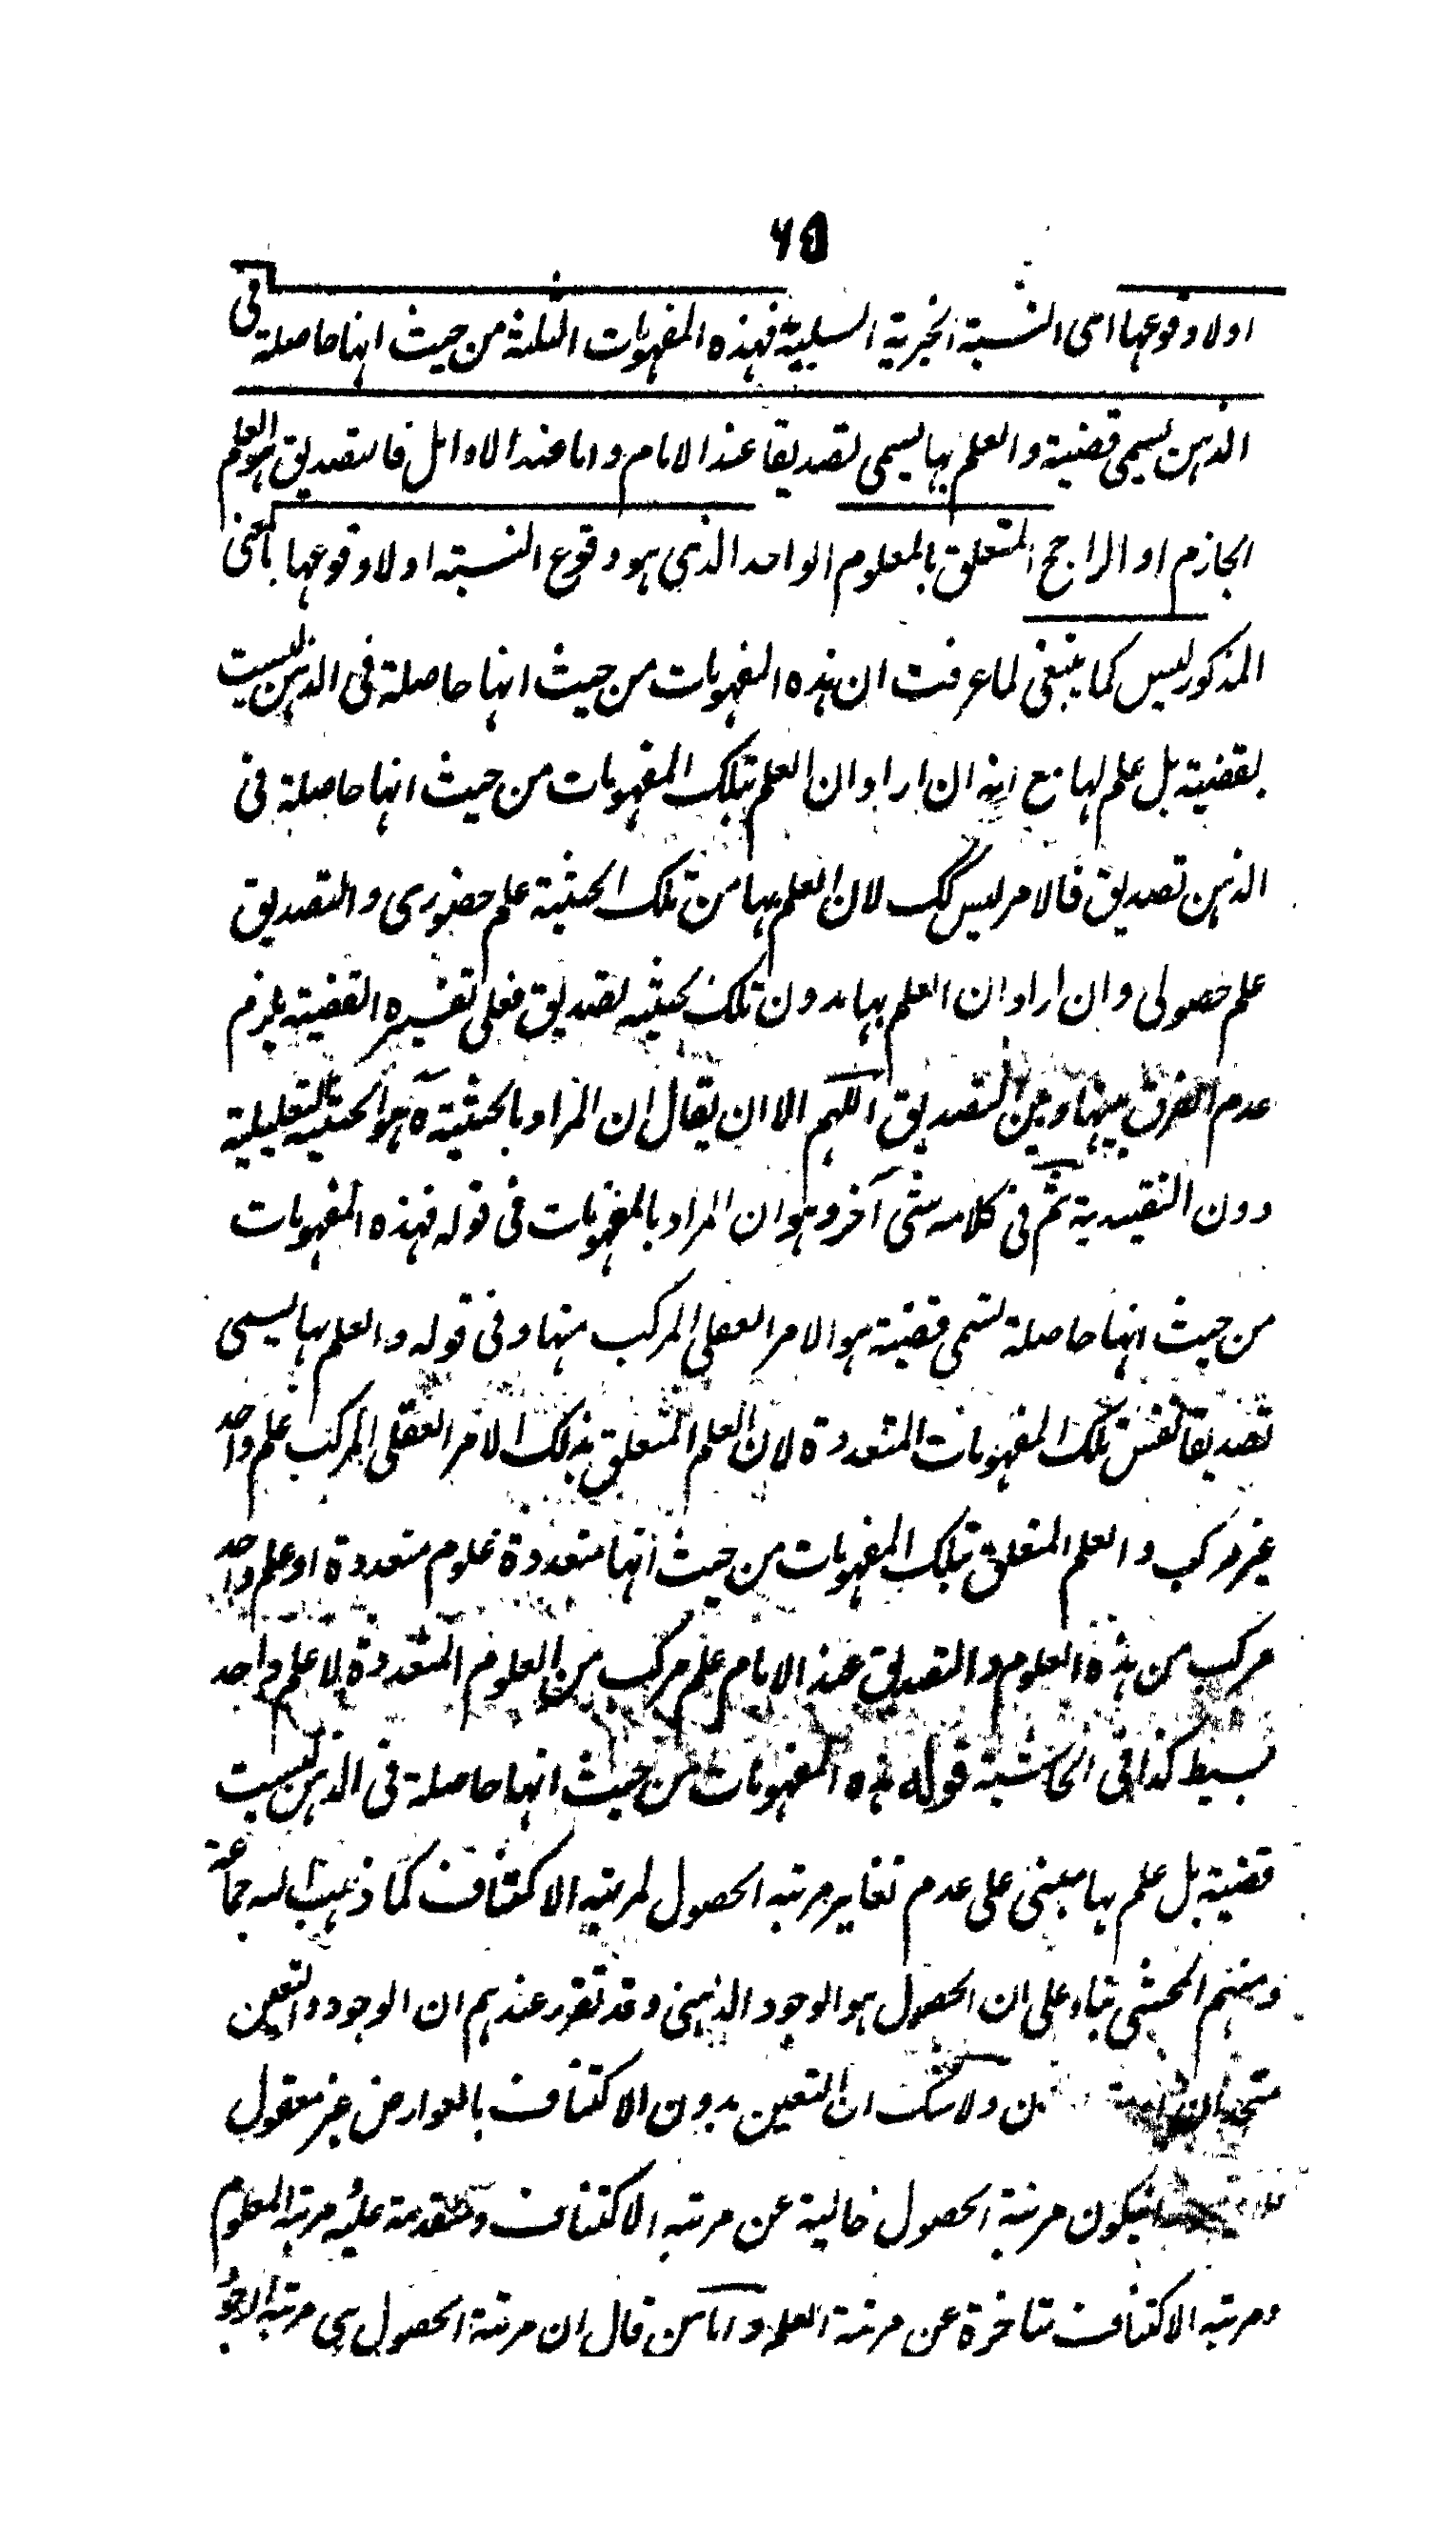 ٦٥
او لا وقوعها اى النسبة الخبرية السلبية فهذه المفهومات الثلثة من حيث انها حاصلة فى
الذهن تسمى قضية والعلم بها يسمى تصديقا عند الامام واما عند الاوائل فالتصديق هو العلم
الجازم او الراجح المتعلق بالمعلوم الواحد الذى هو وقوع النسبة او لا وقوعها بالمعنى
المذكور ليس كما ينبغى لما عرفت ان هذه المفهومات من حيث انها حاصلة فى الذهن ليست
بقضية بل علم لها مع انه ان اراد ان العلم بتلك المفهومات من حيث انها حاصلة فى
الذهن تصديق فالامر ليس كك لان العلم بها من تلك الحيثية علم حضورى والتصديق
علم حصولى وان اراد ان العلم بها بدون تلك الحيثية تصديق فعلى تفسيره القضية يلزم
عدم الفرق بينها وبين التصديق اللهم الا ان يقال ان المراد بالحيثية هو الحيثية التعليلية
دون التقييدية ثم فى كلامه شئ آخر وهو ان المراد بالمفهومات فى قوله فهذه المفهومات
من حيث انها حاصلة تسمى قضية هو الامر العقلى المركب منها وفى قوله والعلم بها يسمى
تصديقا نفس تلك المفهومات المتعددة لان العلم المتعلق بذلك الامر العقلى المركب علم واحد
غير مركب والعلم المتعلق بتلك المفهومات من حيث انها متعددة علوم متعددة او علم واحد
مركب من هذه العلوم والتصديق عند الامام علم مركب من العلوم المتعددة لا علم واحد
بسيط كذا فى الحاشية قوله هذه المفهومات من حيث انها حاصلة فى الذهن ليست
قضية بل علم بها مبنى على عدم تغاير مرتبة الحصول لمرتبة الاكتناف كما ذهب اليه جماعة
ومنهم المحشى بناء على ان الحصول هو الوجود الذهنى وقد تقرر عندهم ان الوجود والتعين
متحدان ولا شك ان التعين بدون الاكتناف بالعوارض غير معقول
فيكون مرتبة الحصول خالية عن مرتبة الاكتناف ومتقدمة عليه مرتبة المعلوم
ومرتبة الاكتناف متاخرة عن مرتبة العلم واما من قال ان مرتبة الحصول هى مرتبة الوجود